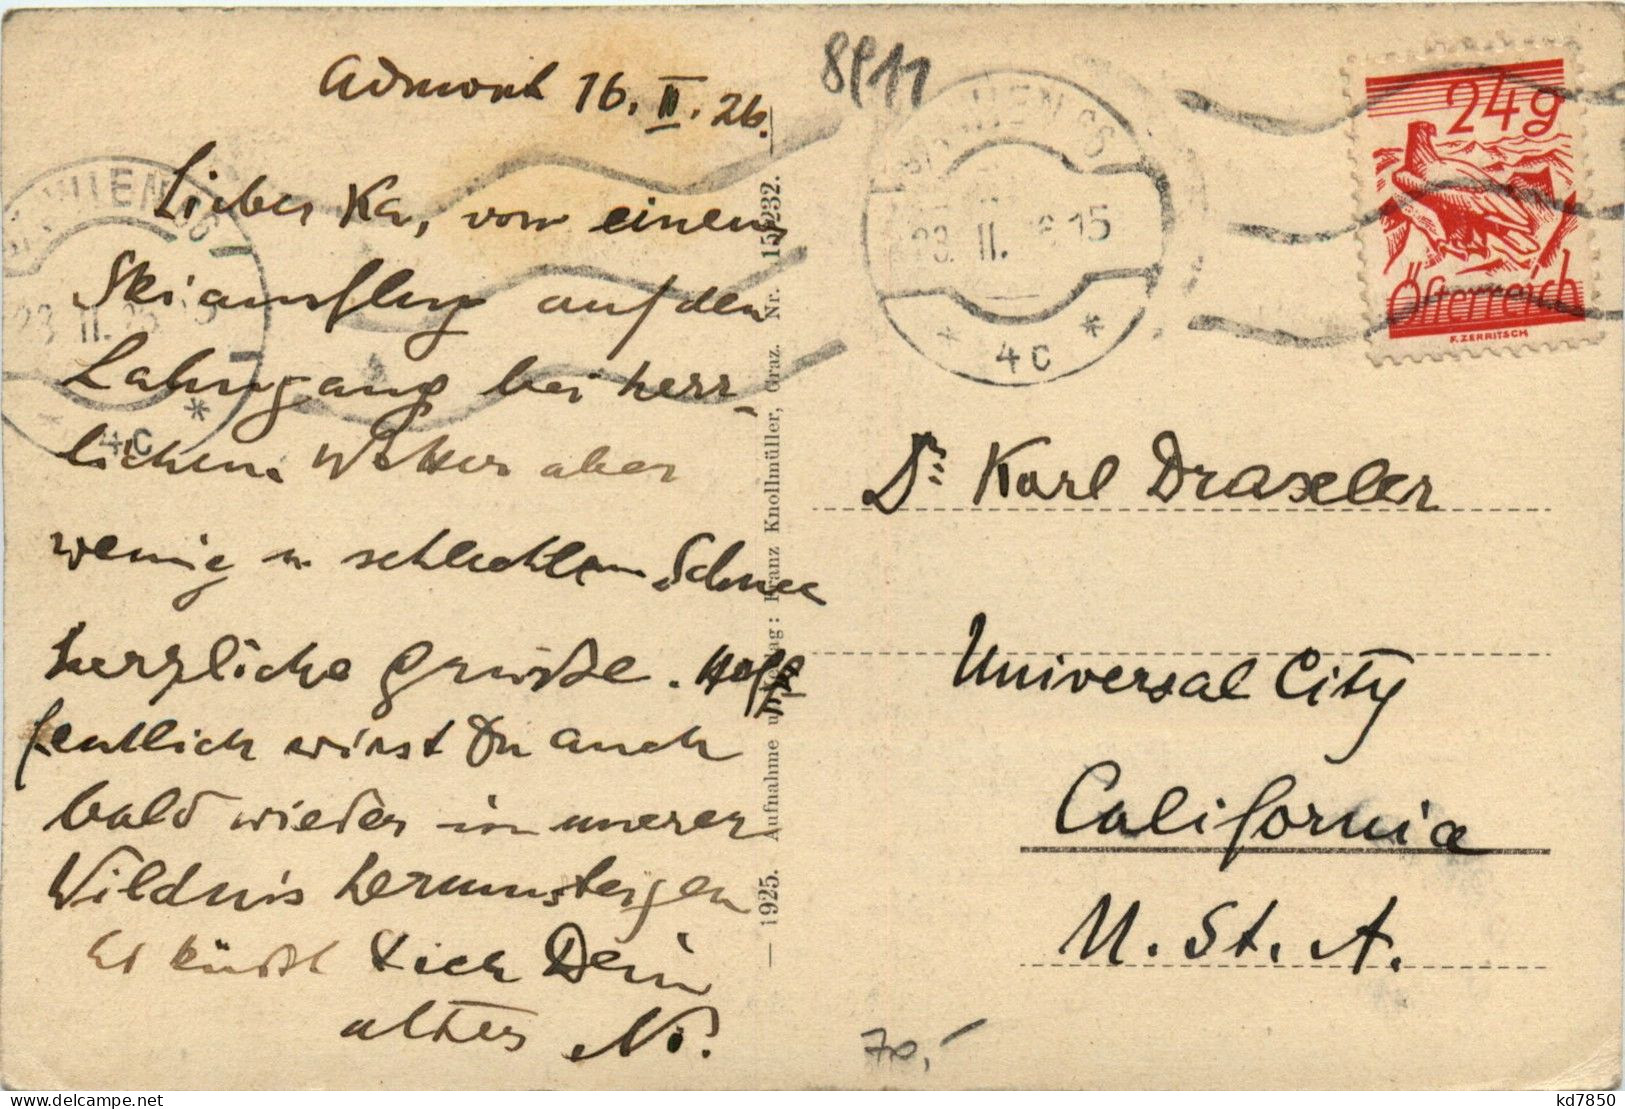 Admont 16. II. 26.
Lieber Ka, von einem
Skiausflug auf den
Lahngang bei herr-
lichem Wetter aber
wenig u. schlechtem Schnee
herzliche Grüße. Hof
fentlich wirst Du auch
bald wieder in unserer
Wildnis herumsteigen
Es küßt Dich Dein
alter No.
— 1925. Aufnahme u. Verlag: Franz Knollmüller, Graz. Nr. 15232. —
8911
23 II. 15
* 4c *
23 II. 26 15
* 4c *
24g
Österreich
F. ZERRITSCH
Dr. Karl Draxler
Universal City
California
U. St. A.
70,-
kd7850